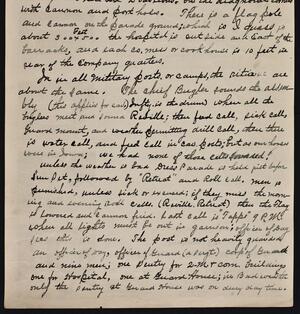 with Cannon and port holes. There is a flag pole
and Cannon on the Parade ground, which is
about 300x500 Feet. the hospital is out side and East of the
barracks, and each co, mess or cook house is 10 feet in
rear of the Company quarters.
In all Military posts, or camps, the
about the same. The chief Bugler sounds the assem
bly (this applies for Inft, is the drum) when all the
buglers meet and sound Reveille; then feed call, sick call,
Guard mount, and weather permitting drill call, then there
is water call, and feed call in Cav. posts, but as our horses
were in we had none of those calls sounded!
unless the weather is bad Dress Parade is held just before
Sun Set, followed by "Retreat" and Roll Call, men is
punished, unless sick or excused; if they miss the morn
ing and evening Roll calls. (Reville. Retreat) then the Flag
is lowered and Cannon fired. Last call is "Tapps" 9 P.M.
when all lights must be out in garrison, officer of Day
sees this is done. The post is not heavily guarded
an officer of Day, officer of Guard (a Sergt) corp of Guard
and nine men; one Sentry for 2-M & com. building
one for Hospital, one at Guard House; in Bad weather
only the Sentry at Guard House was on duty day time.